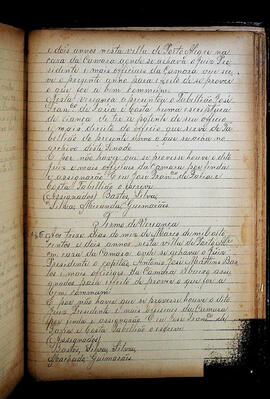 e dois annos nesta villa de Porto Alegre na
casa da Camara aonde se achava o juiz Pre
sidente e mais officiaes da Camara que ser
ve o presente anno para efeito de se prover
o que for a bem commum.
Nesta vereança apresentou o Tabellião José
Franco de Faria e Costa huma
de fiança de ter a patente de seu officio
e mais direito do officio que serve de Ta
bellião do presente anno e que se acha no
archivo deste Senado
E por não haver que se provesse houve o dito
juiz e mais officiaes da Camara por finda
e assignarão. E eu José Franco de Faria e
Costa Tabellião o escrevi
(Assignados) Bastos, Silva,
Silva, Miranda, Guimarães
Termo de Vereança
Aos treze dias do mez de Março de mil oito
centos e dois annos nesta villa de Porto Alegre
em casa da Camara aonde se achava o juiz
Presidente o capitão Antonio José Martins Bas
tos e mais officiaes da Camara abaixo assi
gnados para efeito de prover o que for a
bem commum
E por não haver que se provesse houve o dito
Juiz Presidente e mais officiaes da Camara
por finda e assignarão. E eu José Franco de
Faria e Costa Tabellião o escrevi
(Assignados)
Bastos, Silva, Silva,
Machado, Guimarães